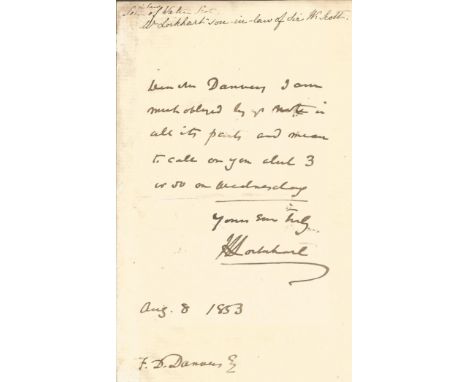 Mr Lockhart son-in-law of Sir W. Scott
Dear Mr Danvers I am
much obliged by yr note in
all its parts and mean
to call on you abt 3
or so on Wednesday
Yours
J G Lockhart
Aug. 8 1853
F. D. Danvers Eq